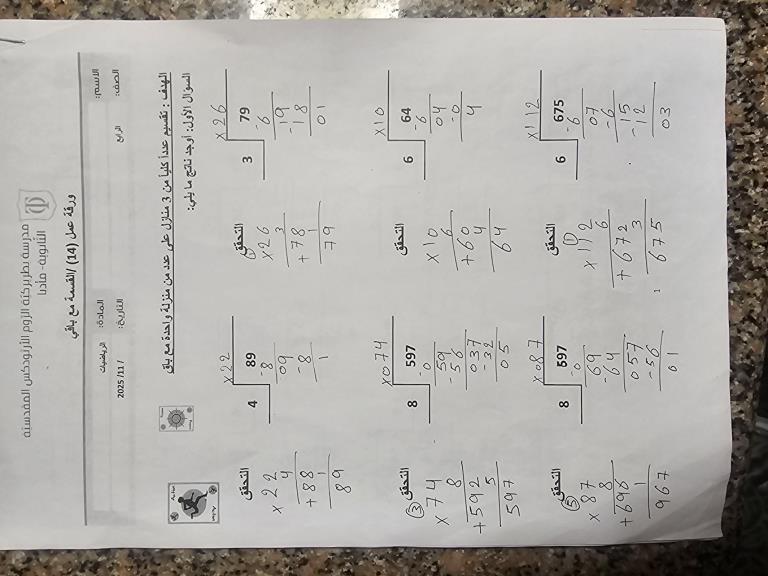 مدرسة بطريركية الروم الأرثوذكس المقدسية
الثانوية- مادبا
ورقة عمل (14) /القسمة مع باقي
الاسم: المادة: الرياضيات
الصف: الرابع التاريخ: /11/ 2025
الهدف : تقسيم عدداً كلياً من 3 منازل على عدد من منزلة واحدة مع باق
السؤال الأول: أوجد ناتج ما يلي:
×26
3 79
-6
19
-18
01
التحقق
×26
3
+78
1
79
×22
4 89
-8
09
-8
1
التحقق
×22
4
+88
1
89
×10
6 64
-6
04
-0
4
التحقق
×10
6
+60
4
64
×074
8 597
-0
59
-56
037
-32
05
التحقق
③
×74
8
+592
5
597
×112
6 675
-6
07
-6
15
-12
03
التحقق
①
×112
6
+672
3
675
×087
8 597
-0
69
-64
057
-56
01
التحقق
⑤
×87
8
+696
1
967